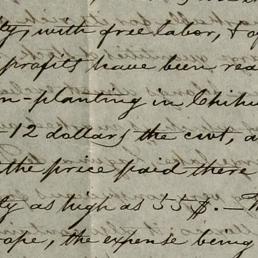 ty, with free labor, &
profits have been rea
n-planting in Chihu
-12 dollars the cwt, a
the price paid there
ty as high as 55$. -
rope, the expense being